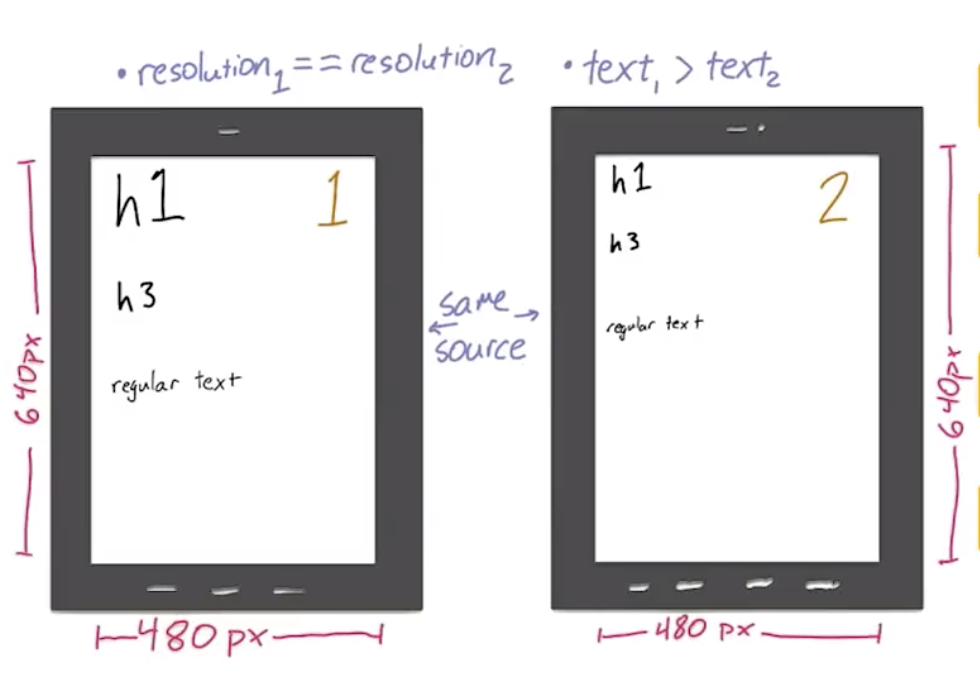 • resolution₁ == resolution₂
• text₁ > text₂
h1
1
h3
regular text
640px
480 px
same
source
h1
2
h3
regular text
640px
480 px